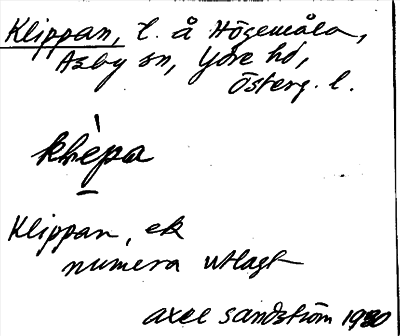 Klippan, t. å Högemåla,
Asby sn, Ydre hd,
Österg. l.
klèpa
Klippan, ek
numera utlagt
Axel Sandström 1930